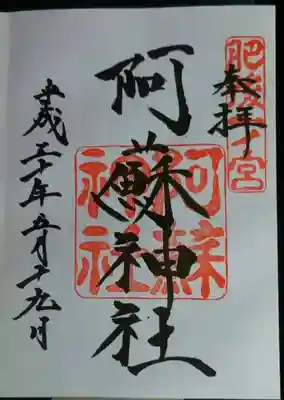 肥後一ノ宮
奉拝
阿蘇神社
阿蘇
神社
平成三十年五月十九日